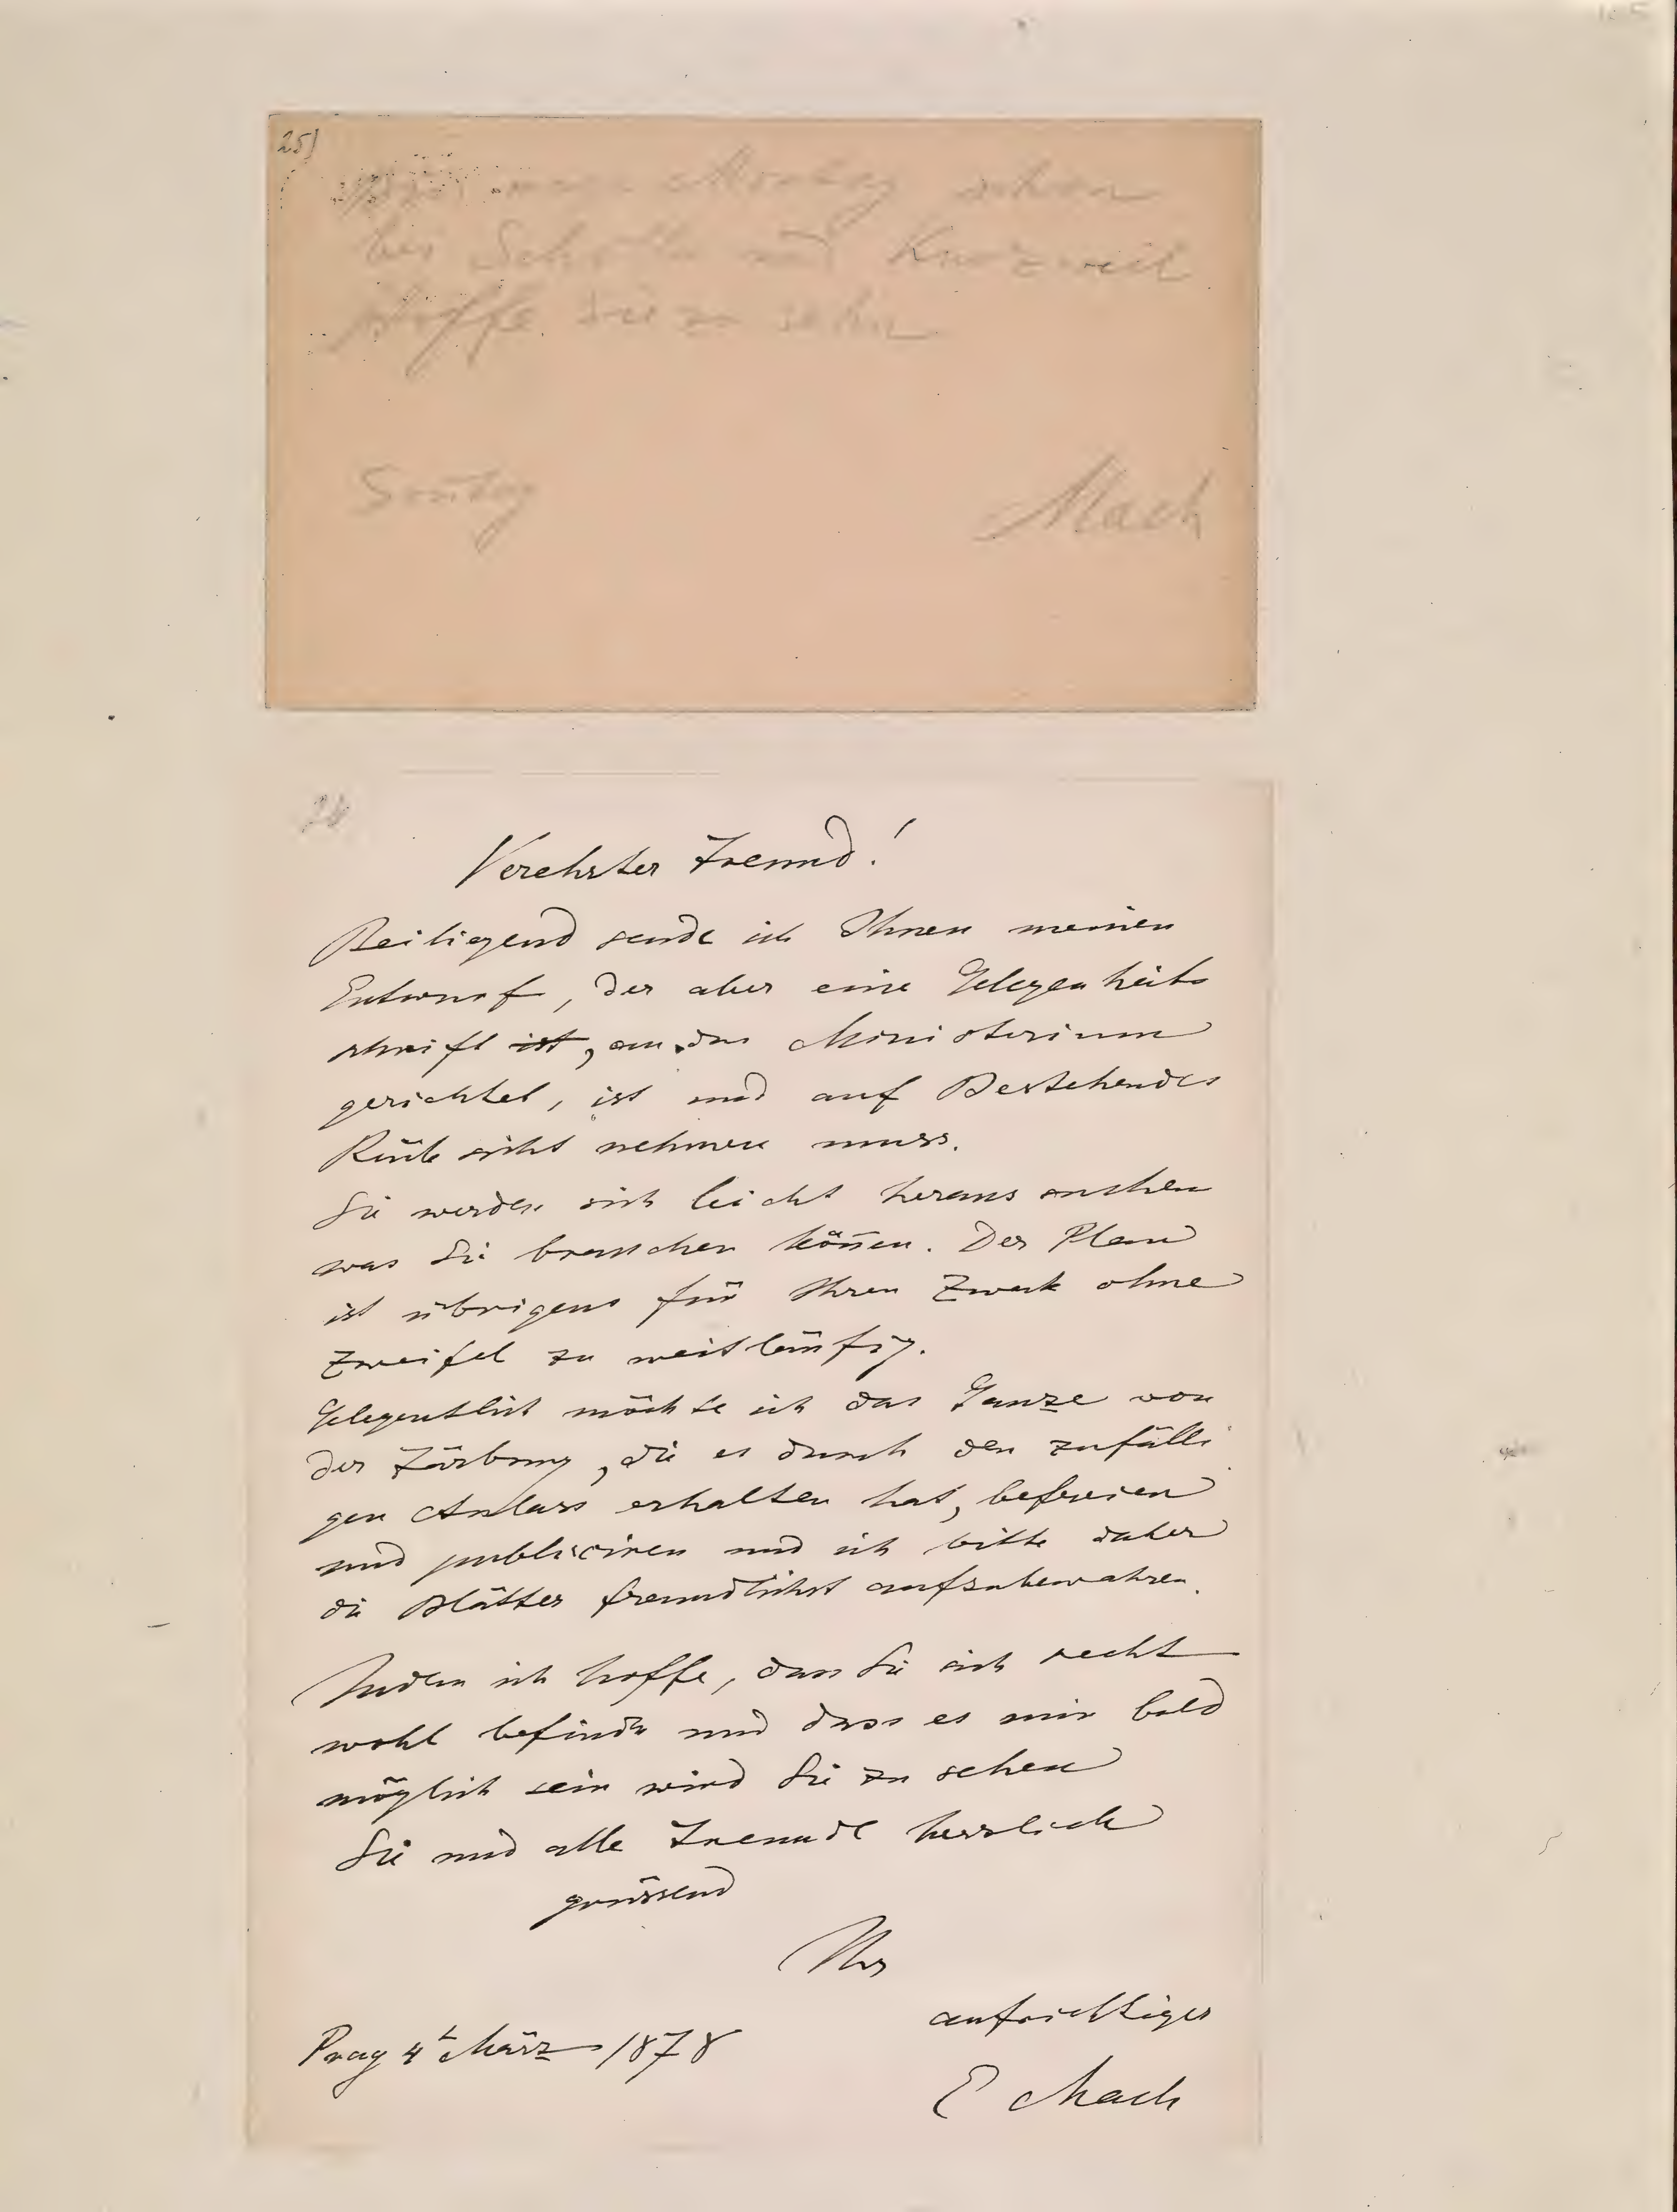 25)
Montag schon
bei Scholle und Kurzweil
hoffe Sie zu sehn
Sontag Mach
Verehrter Freund!
Beiligend sende ich Ihnen meinen
Entwurf, der aber eine Gelegenheits
schrift ist, an das Ministerium
gerichtet, ist und auf Bestehendes
Rücksicht nehmen muss.
Sie werden sich leicht heraus suchen
was Sie brauchen können. Der Plan
ist übrigens für Ihren Zweck ohne
Zweifel zu weitläufig.
Gelegentlich möchte ich das Ganze von
der Färbung, die es durch den zufälli
gen Anlass erhalten hat, befreien
und publiciren und ich bitte daher
die Blätter freundlichst aufzubewahren.
Indem ich hoffe, dass Sie sich recht
wohl befinden und dass es mir bald
möglich sein wird Sie zu sehen
Sie und alle Freunde herzlich
grüssend
Ihr
aufrichtiger
Prag 4t März 1878
E Mach